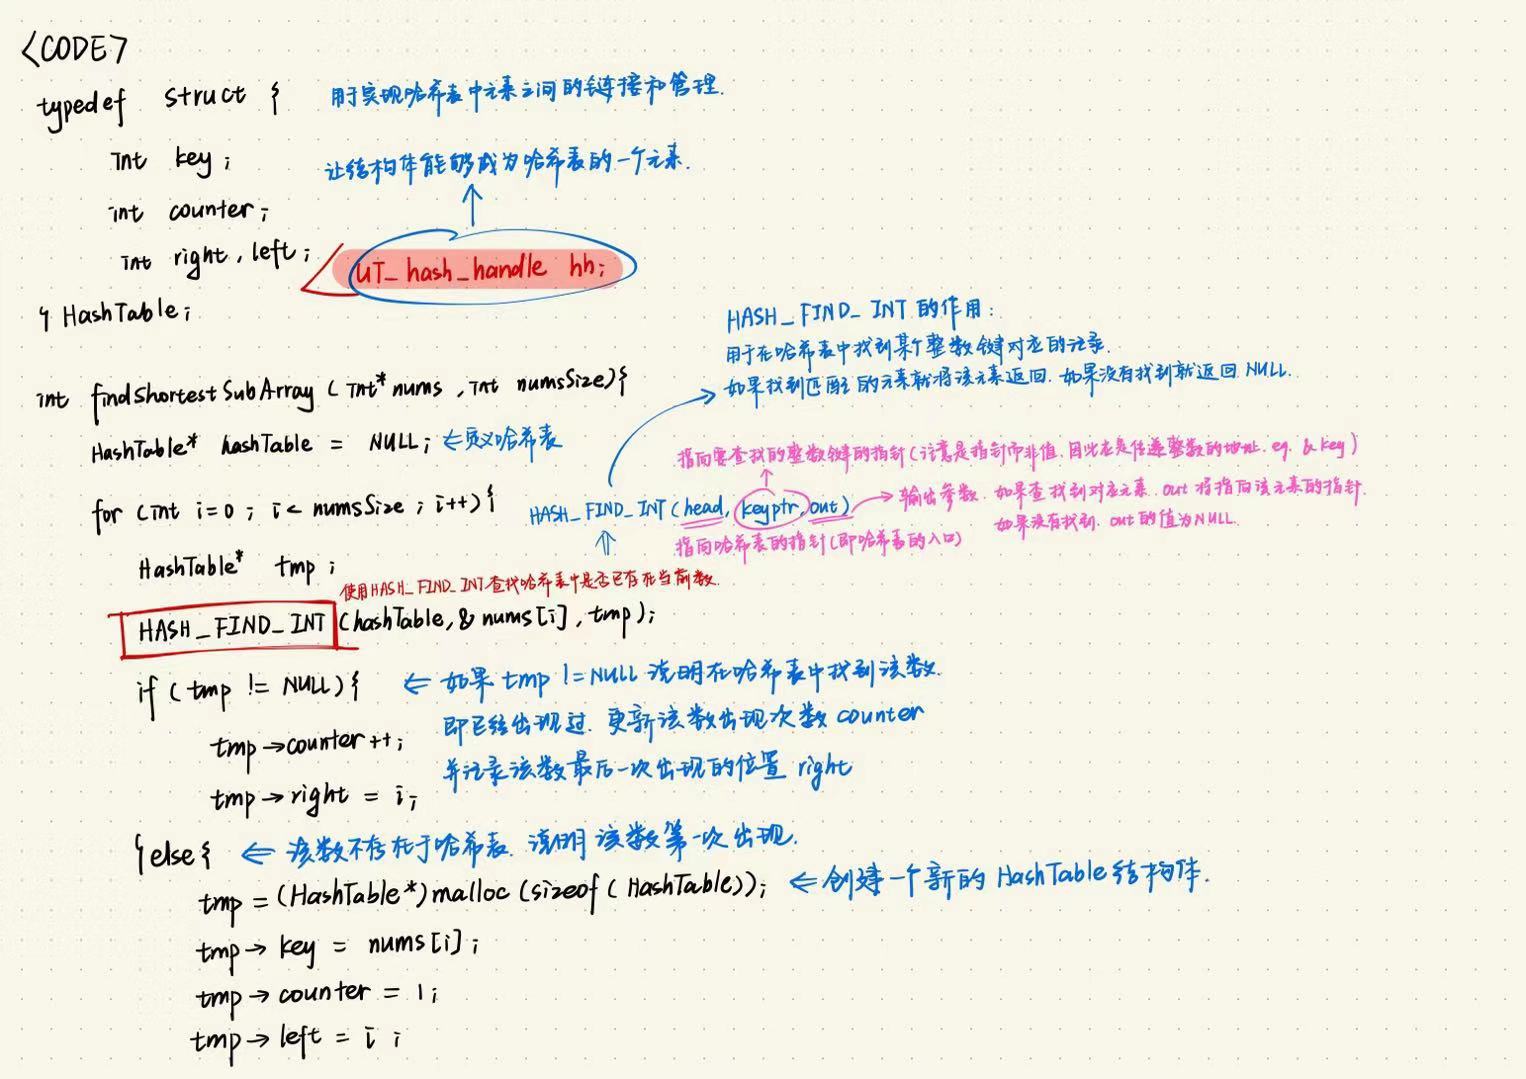 <CODE>
typedef struct {
用于实现哈希表中元素之间的链接和管理.
int key;
让结构体能够成为哈希表的一个元素.
int counter;
int right, left;
UT_hash_handle hh;
} HashTable;
HASH_FIND_INT 的作用:
用于在哈希表中找到某个整数键对应的记录.
如果找到匹配的元素就将该元素返回. 如果没有找到就返回 NULL.
int findShortestSubArray (int* nums, int numsSize){
HashTable* hashTable = NULL; ←定义哈希表
指向要查找的整数键的指针(注意是指针而非值. 因此应是传递整数的地址. eg. &key)
for (int i=0; i< numsSize; i++){
HASH_FIND_INT (head, keyptr, out) → 输出参数. 如果查找到对应元素. out 将指向该元素的指针.
如果没有找到. out的值为NULL.
指向哈希表的指针(即哈希表的入口)
HashTable* tmp;
使用HASH_FIND_INT查找哈希表中是否已存在当前数.
HASH_FIND_INT (hashTable, & nums[i], tmp);
if (tmp != NULL){ ⇐ 如果 tmp != NULL 说明在哈希表中找到该数.
即已经出现过. 更新该数出现次数 counter
tmp→counter++;
并记录该数最后一次出现的位置 right
tmp→right = i;
}else{ ⇐ 该数不存在于哈希表. 说明该数第一次出现.
tmp = (HashTable*)malloc (sizeof (HashTable)); ⇐创建一个新的 HashTable结构体.
tmp→ key = nums[i];
tmp→ counter = 1;
tmp→ left = i;